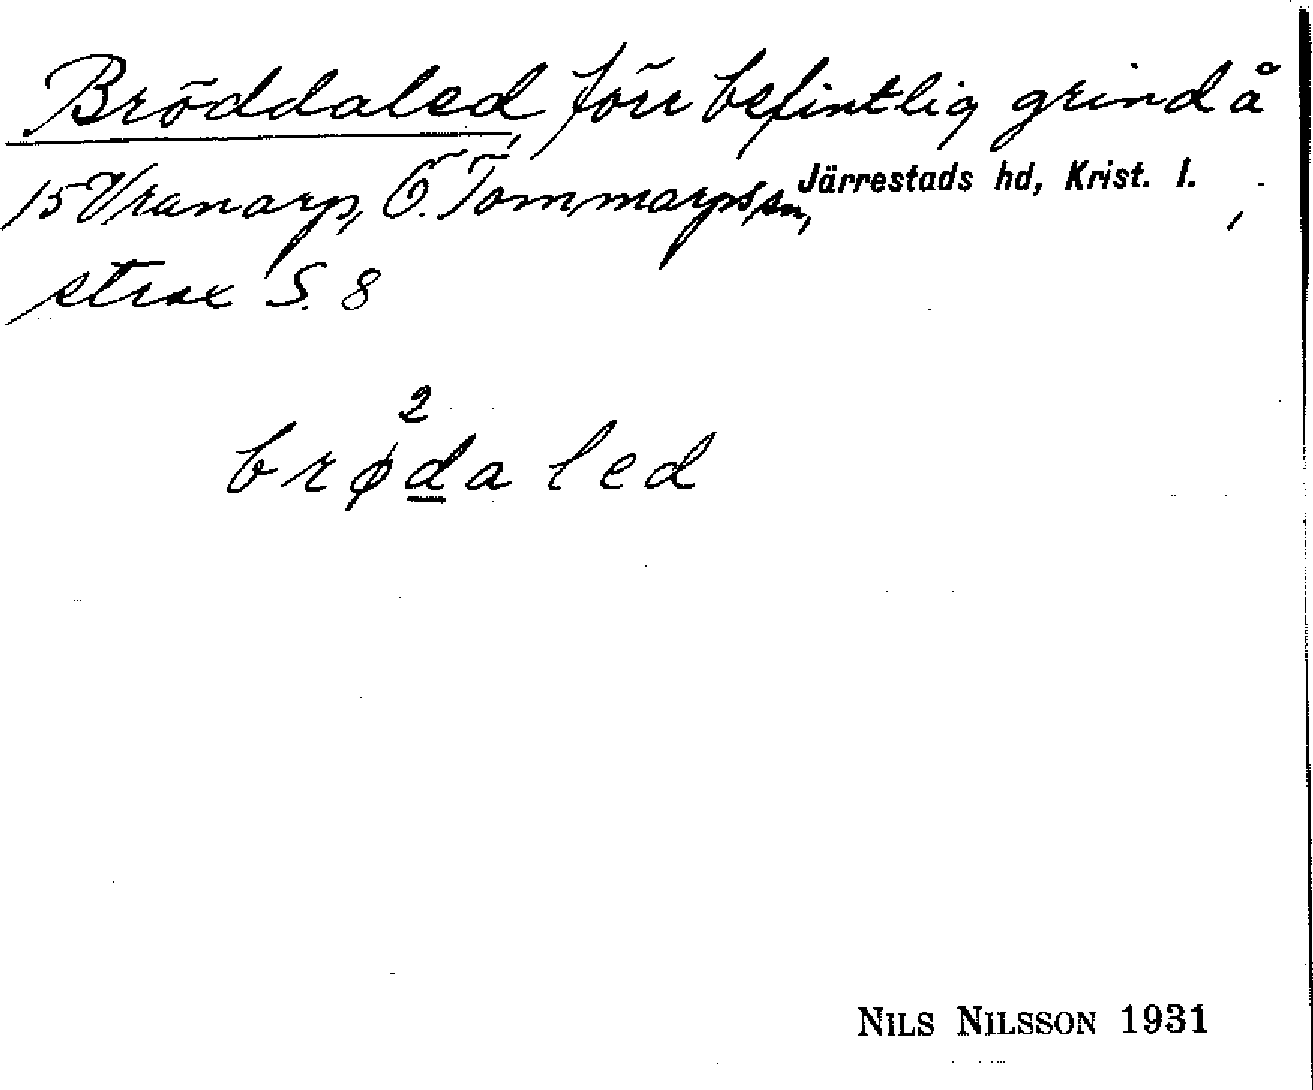 Bröddaled, förr befintlig grind å
15 Vranarp, Ö. Tommarps sn, Järrestads hd, Krist. l. ,
strax S. 8
2
brøda led
NILS NILSSON 1931